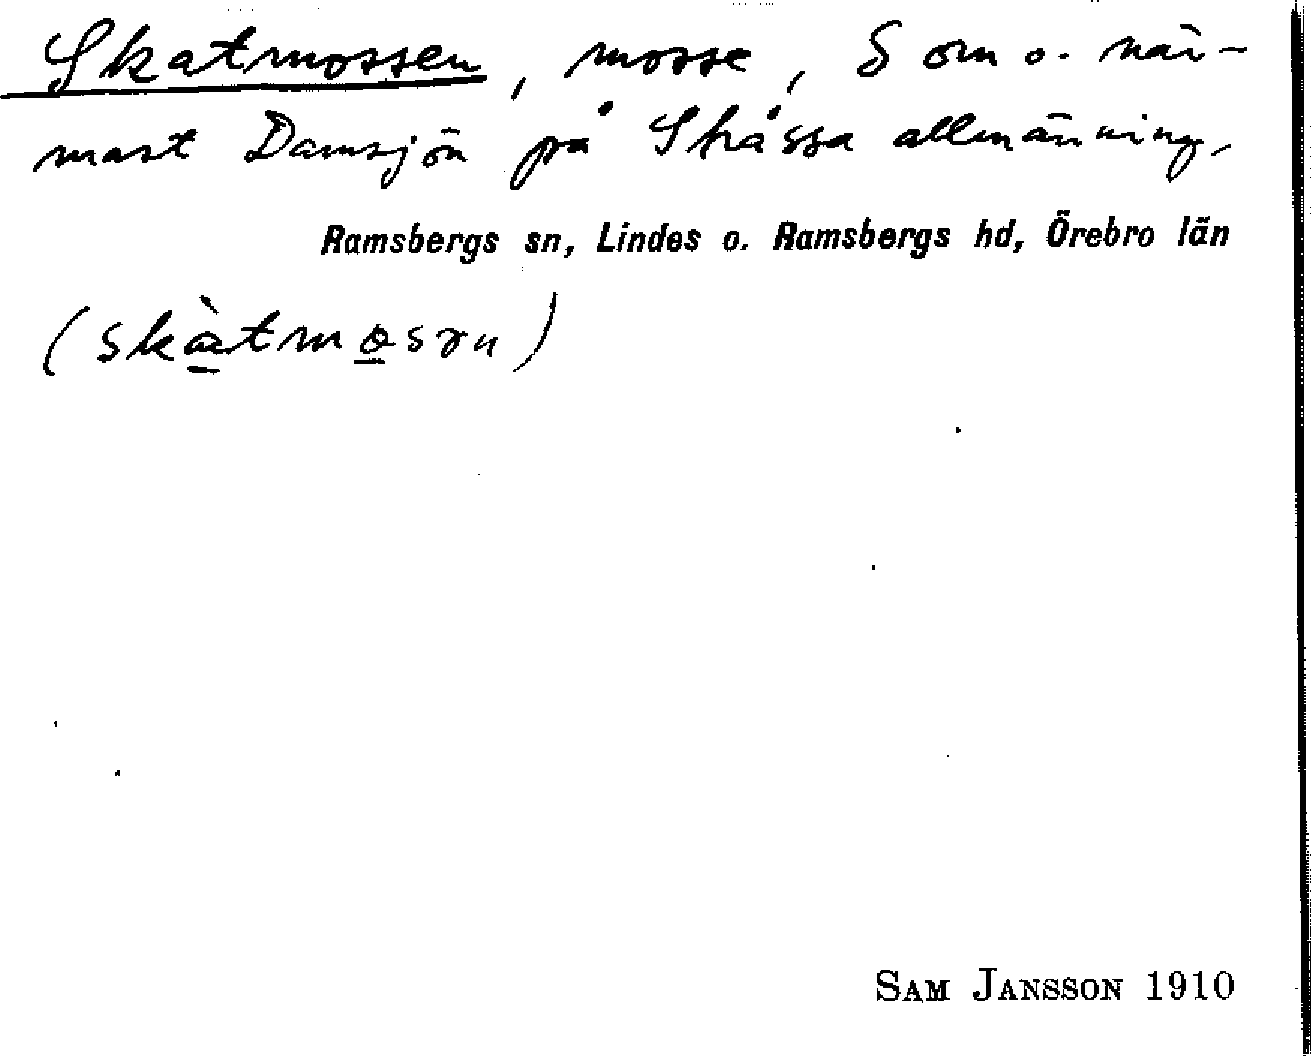 Skatmossen, mosse, S om o. när-
mast Damsjön på Stråssa allmänning,
Ramsbergs sn, Lindes o. Ramsbergs hd, Örebro län
(skàtmosru)
SAM JANSSON 1910